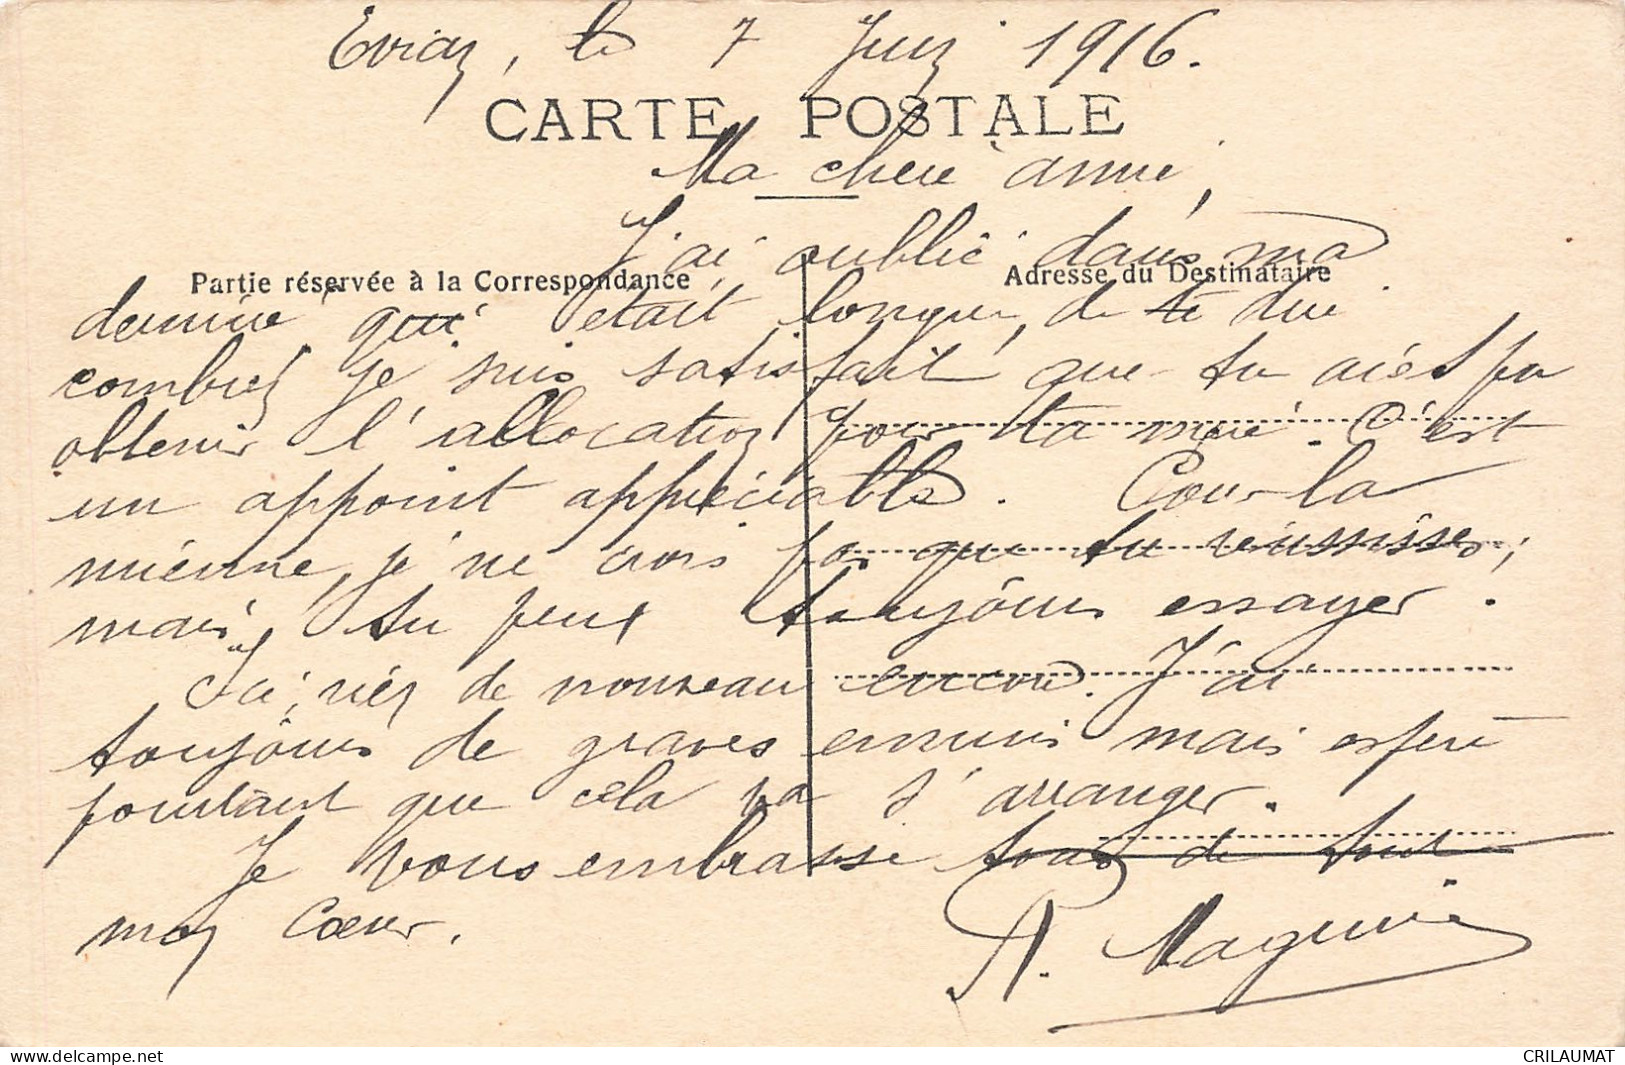 Evian, le 7 Juin 1916.
CARTE POSTALE
Ma chère amie,
J'ai oublié dans ma
Partie réservée à la Correspondance
Adresse du Destinataire
dernière qui était longue, de te dire
combien je suis satisfait que tu aies pu
obtenir l'allocation pour ta mère. C'est
un appoint appréciable. Pour la
mienne, je ne crois pas que tu réussisses,
mais tu peux toujours essayer.
Ici, rien de nouveau encore. J'ai
toujours de graves ennuis mais espère
pourtant que cela va s'arranger.
Je vous embrasse tous de tout
mon cœur.